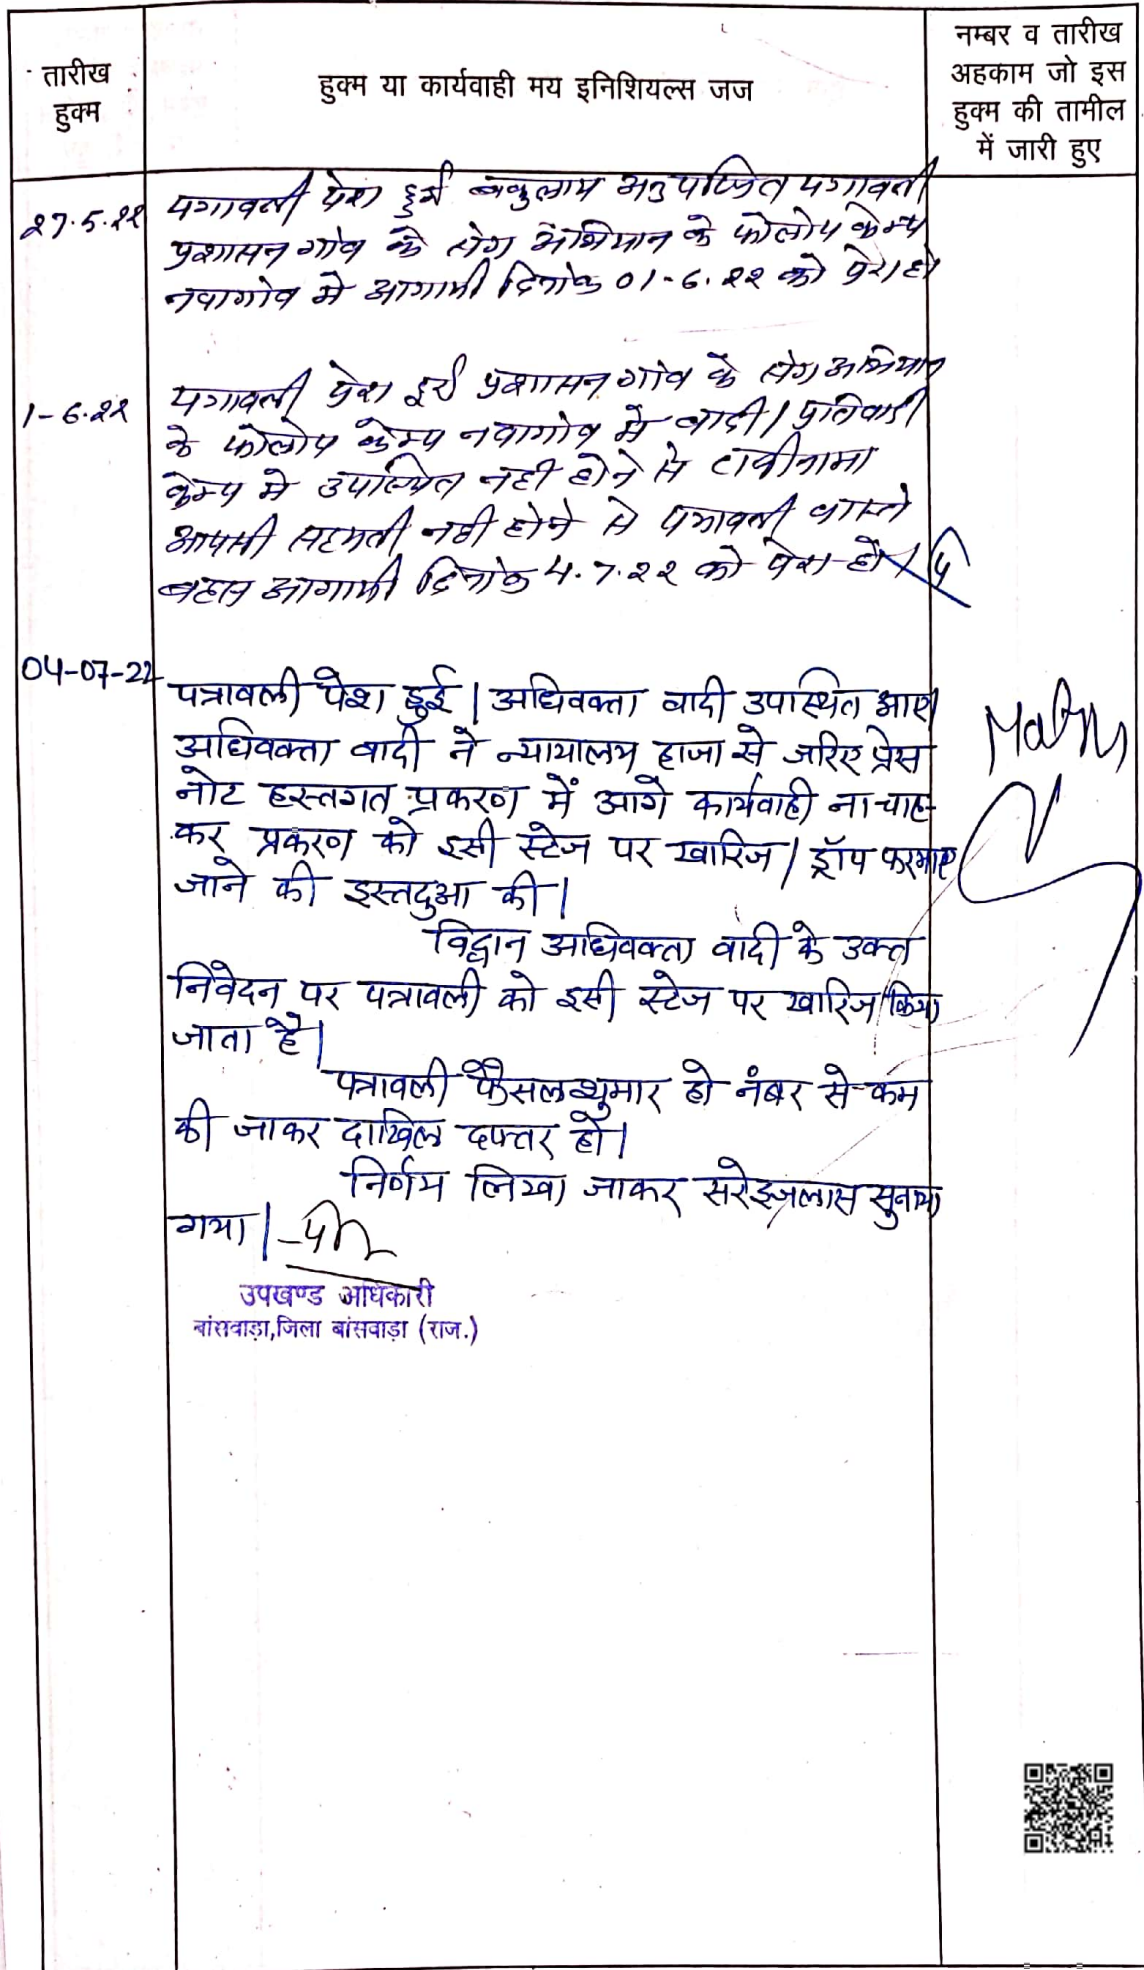 तारीख
हुक्म
हुक्म या कार्यवाही मय इनिशियल्स जज
नम्बर व तारीख
अहकाम जो इस
हुक्म की तामील
में जारी हुए
27.5.22
पत्रावली पेश हुई वकुलाय अनुपस्थित पत्रावली
प्रशासन गांव के संग अभियान के फोलोप केम्प
नवागांव में आगामी दिनांक 01-6.22 को पेश हो
1-6.22
पत्रावली पेश हुई प्रशासन गांव के संग अभियान
के फोलोप केम्प नवागांव में वादी/प्रतिवादी
केम्प में उपस्थित नही होने से राजीनामा
आपसी सहमती नही होने से पत्रावली वास्ते
बहस आगामी दिनांक 4.7.22 को पेश हो।
04-07-22
पत्रावली पेश हुई। अधिवक्ता वादी उपस्थित आए।
अधिवक्ता वादी ने न्यायालय हाजा से जरिए प्रेस
नोट हस्तगत प्रकरण में आगे कार्यवाही ना चाह-
कर प्रकरण को इसी स्टेज पर खारिज/ड्रॉप फरमाए
जाने की इस्तदुआ की।
विद्वान अधिवक्ता वादी के उक्त
निवेदन पर पत्रावली को इसी स्टेज पर खारिज किया
जाता है।
पत्रावली फैसलशुमार हो नंबर से कम
की जाकर दाखिल दफ्तर हो।
निर्णय लिखा जाकर सरेइजलास सुनाया
गया।
उपखण्ड अधिकारी
बांसवाड़ा,जिला बांसवाड़ा (राज.)